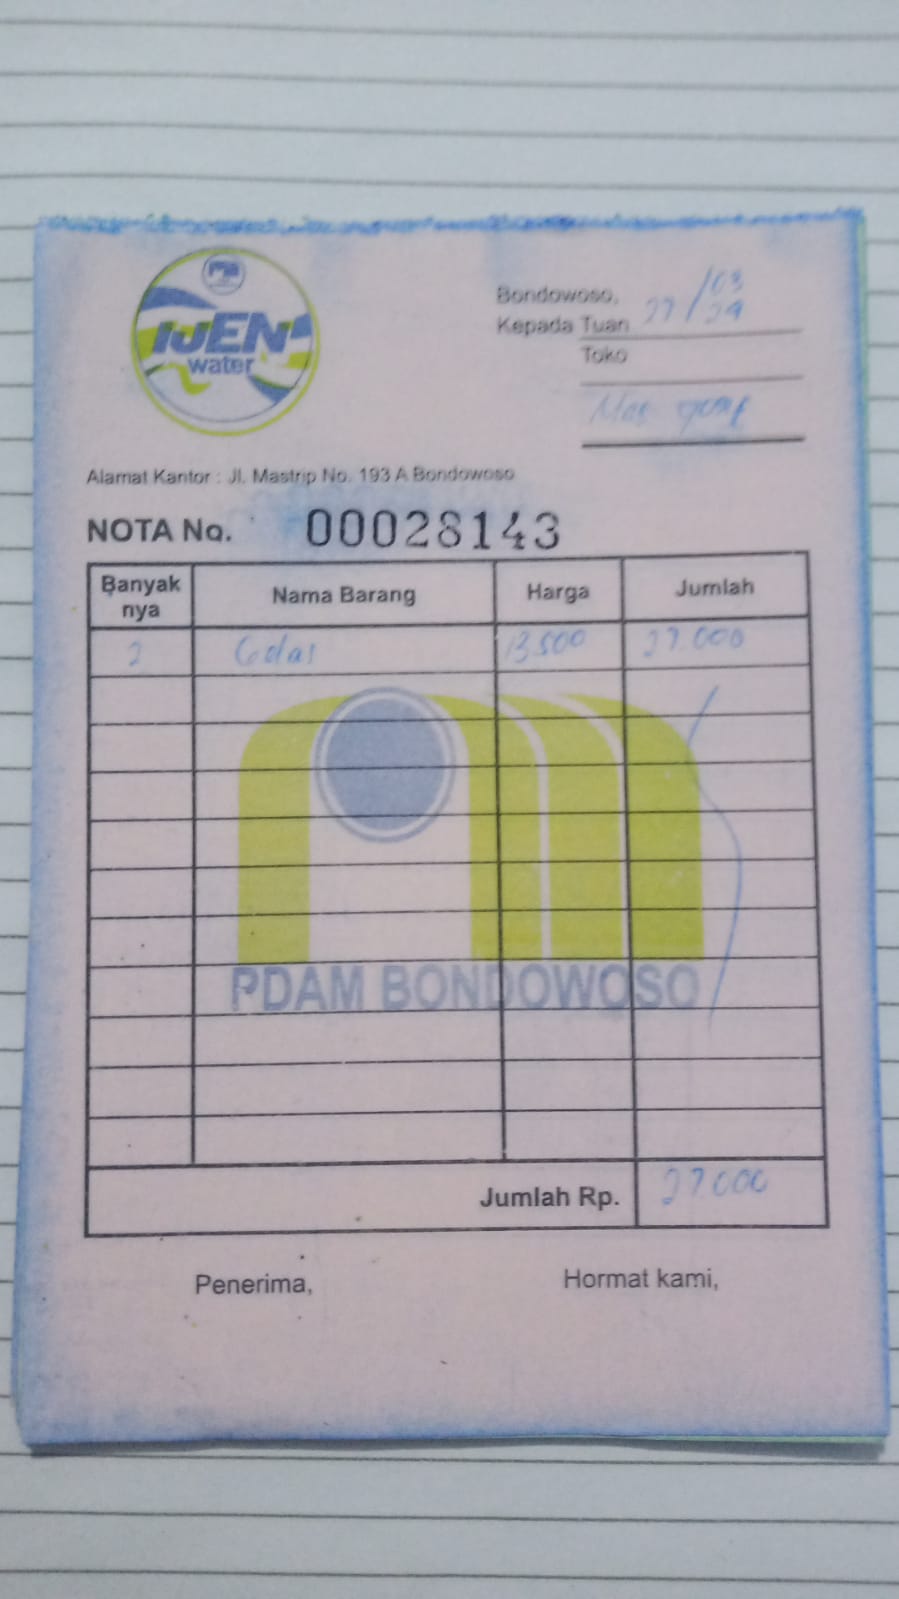 IJEN
water
Bondowoso, 27/03
Kepada Tuan 24
Toko
Mas
Alamat Kantor : Jl. Mastrip No. 193 A Bondowoso
NOTA No. 00028143
Banyak nya Nama Barang Harga Jumlah
2 Gelas 13.500 27.000
PDAM BONDOWOSO
Jumlah Rp. 27.000
Penerima, Hormat kami,